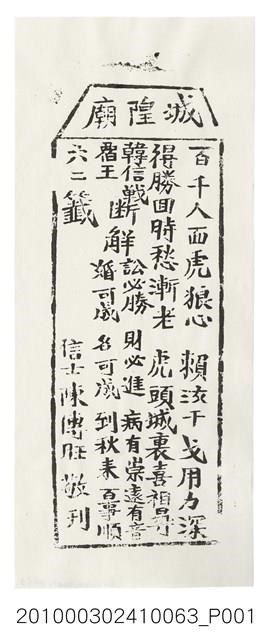 城隍廟
百千人面虎狼心 賴汝干戈用力深
得勝回時愁漸老 虎頭城裏喜相尋
韓信戰霸王
断解 訟必勝 財必進 病有祟 遠有音
婚可成 名可成 到秋來 百事順
六二籤
信士陳傅旺敬刊
201000302410063_P001